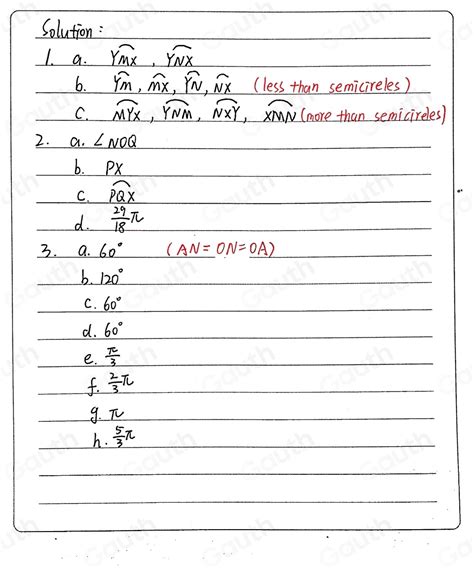 Solution:
1. a. YMX, YNX
b. YM, MX, YN, NX (less than semicireles)
C. MYX, YNM, NXY, XMN (more than semicireles)
2. a. ∠NOQ
b. PX
c. PQX
d. 29/18 π
3. a. 60° (AN=ON=OA)
b. 120°
c. 60°
d. 60°
e. π/3
f. 2/3 π
g. π
h. 5/3 π
Gauth